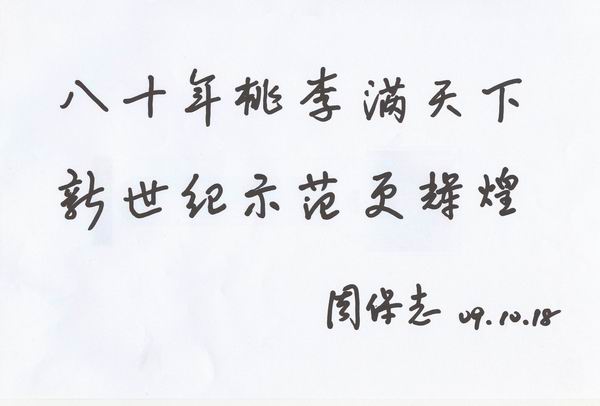 八十年桃李满天下
新世纪示范更辉煌
周保志 09.10.18